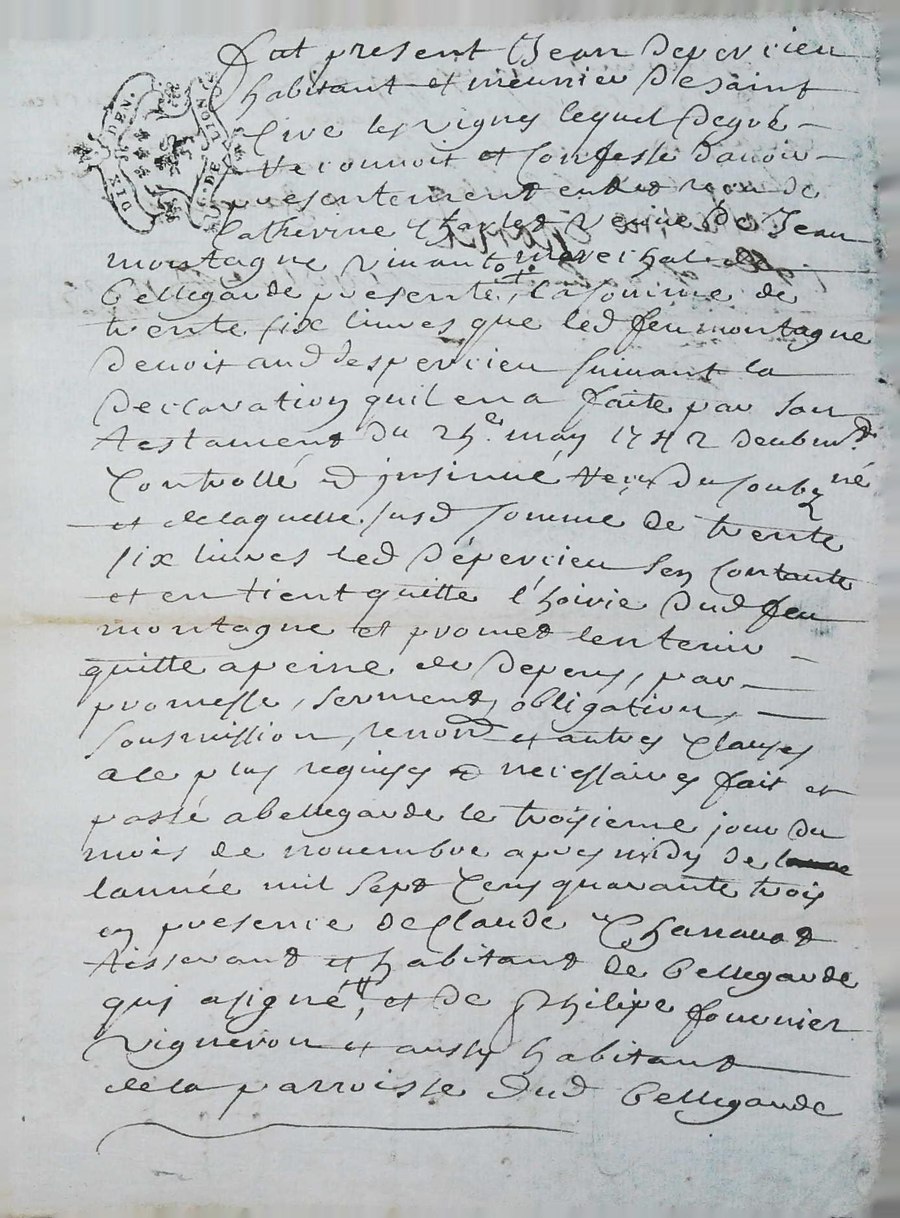 DIX DEN.
G. DE LION
fut present Jean Depercieu
habitant et meunier de saint
Cire les vignes lequel de gré
reconnoit et confesse d'auoir
presentement eu et receu de
Catherine Charles veuive de Jean
montagne viuant marechal de
bellegarde presente, la somme de
trente six liures que led feu montagne
devoit aud Despercieu suiuant la
declaration quil en a faite par son
testament du 25e may 1742 deubmt
Controllé et insinué
et de laquelle susd somme de trente
six liures led Dépercieu sen contante
et en tient quitte l'hoirie dud feu
montagne et promet len tenir
quitte a peine de depens, par
promesse, serment, obligation,
soumission, renond et autres clauses
a ce plus requises et necessaires fait et
passé a bellegarde le troisieme jour du
mois de nouembre apres midy de
lannée mil sept cens quarante trois
en presence de Claude Charauat
tisserand et habitant de bellegarde
qui a signé, et de philipe fournier
vigneron et aussy habitant
de la parroisse dud bellegarde